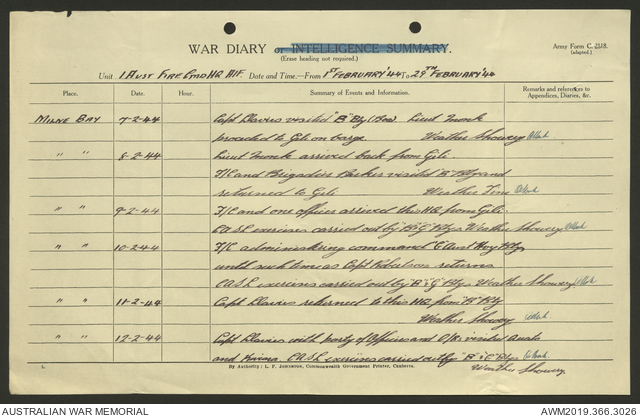 WAR DIARY or INTELLIGENCE SUMMARY.
(Erase heading not required.)
Army Form C. 2118.
(adapted.)
Unit 1 Aust Fire Cmd HQ AIF. Date and Time.—From 1st February '44 To 29th February '44
Place. Date. Hour. Summary of Events and Information. Remarks and references to Appendices, Diaries, &c.
Milne Bay 7-2-44 Capt Davies visited "B" Bty Lieut Monk
proceeded to Gili on barge Weather Showery
" " 8-2-44 Lieut Monk arrived back from Gili.
T/C and Brigadier Barker visited "B" Bty and
returned to Gili Weather Fine
" " 9-2-44 T/C and one officer arrived this HQ from Gili.
CASL exercises carried out by "B" & "G" Btys Weather Showery
" " 10-2-44 T/C administering command Aust Hvy Bty
until such time as Capt Robertson returns
CASL exercises carried out by "B" & "G" Btys Weather Showery
" " 11-2-44 Capt Davies returned to this HQ from "B" Bty
Weather Showery
" " 12-2-44 Capt Davies with party of Officers and O/Rs visited
and CASL exercises carried out by "B" Btys
Weather Showery
L.
By Authority: L. F. Johnston, Commonwealth Government Printer, Canberra.
AUSTRALIAN WAR MEMORIAL
AWM2019.366.3026